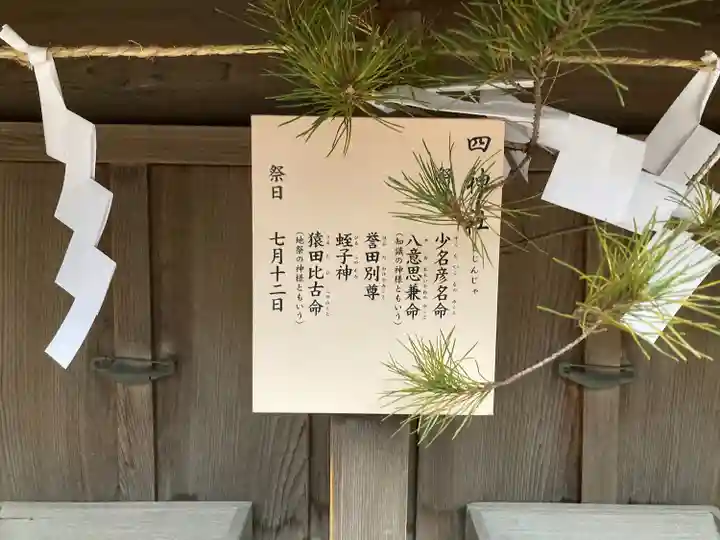 四神社
じんじゃ
少名彦名命
八意思兼命
(知識の神様ともいう)
誉田別尊
蛭子神
猿田比古命
(地祭の神様ともいう)
祭日 七月十二日